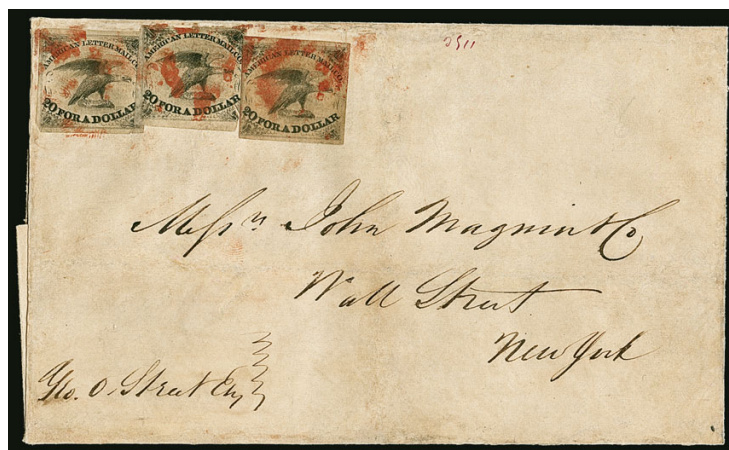 AMERICAN LETTER MAIL CO.
20 FOR A DOLLAR
AMERICAN LETTER MAIL CO.
20 FOR A DOLLAR
AMERICAN LETTER MAIL CO.
20 FOR A DOLLAR
Messrs John Magnin & Co
Wall Street
New York
Geo. O. Street Esq